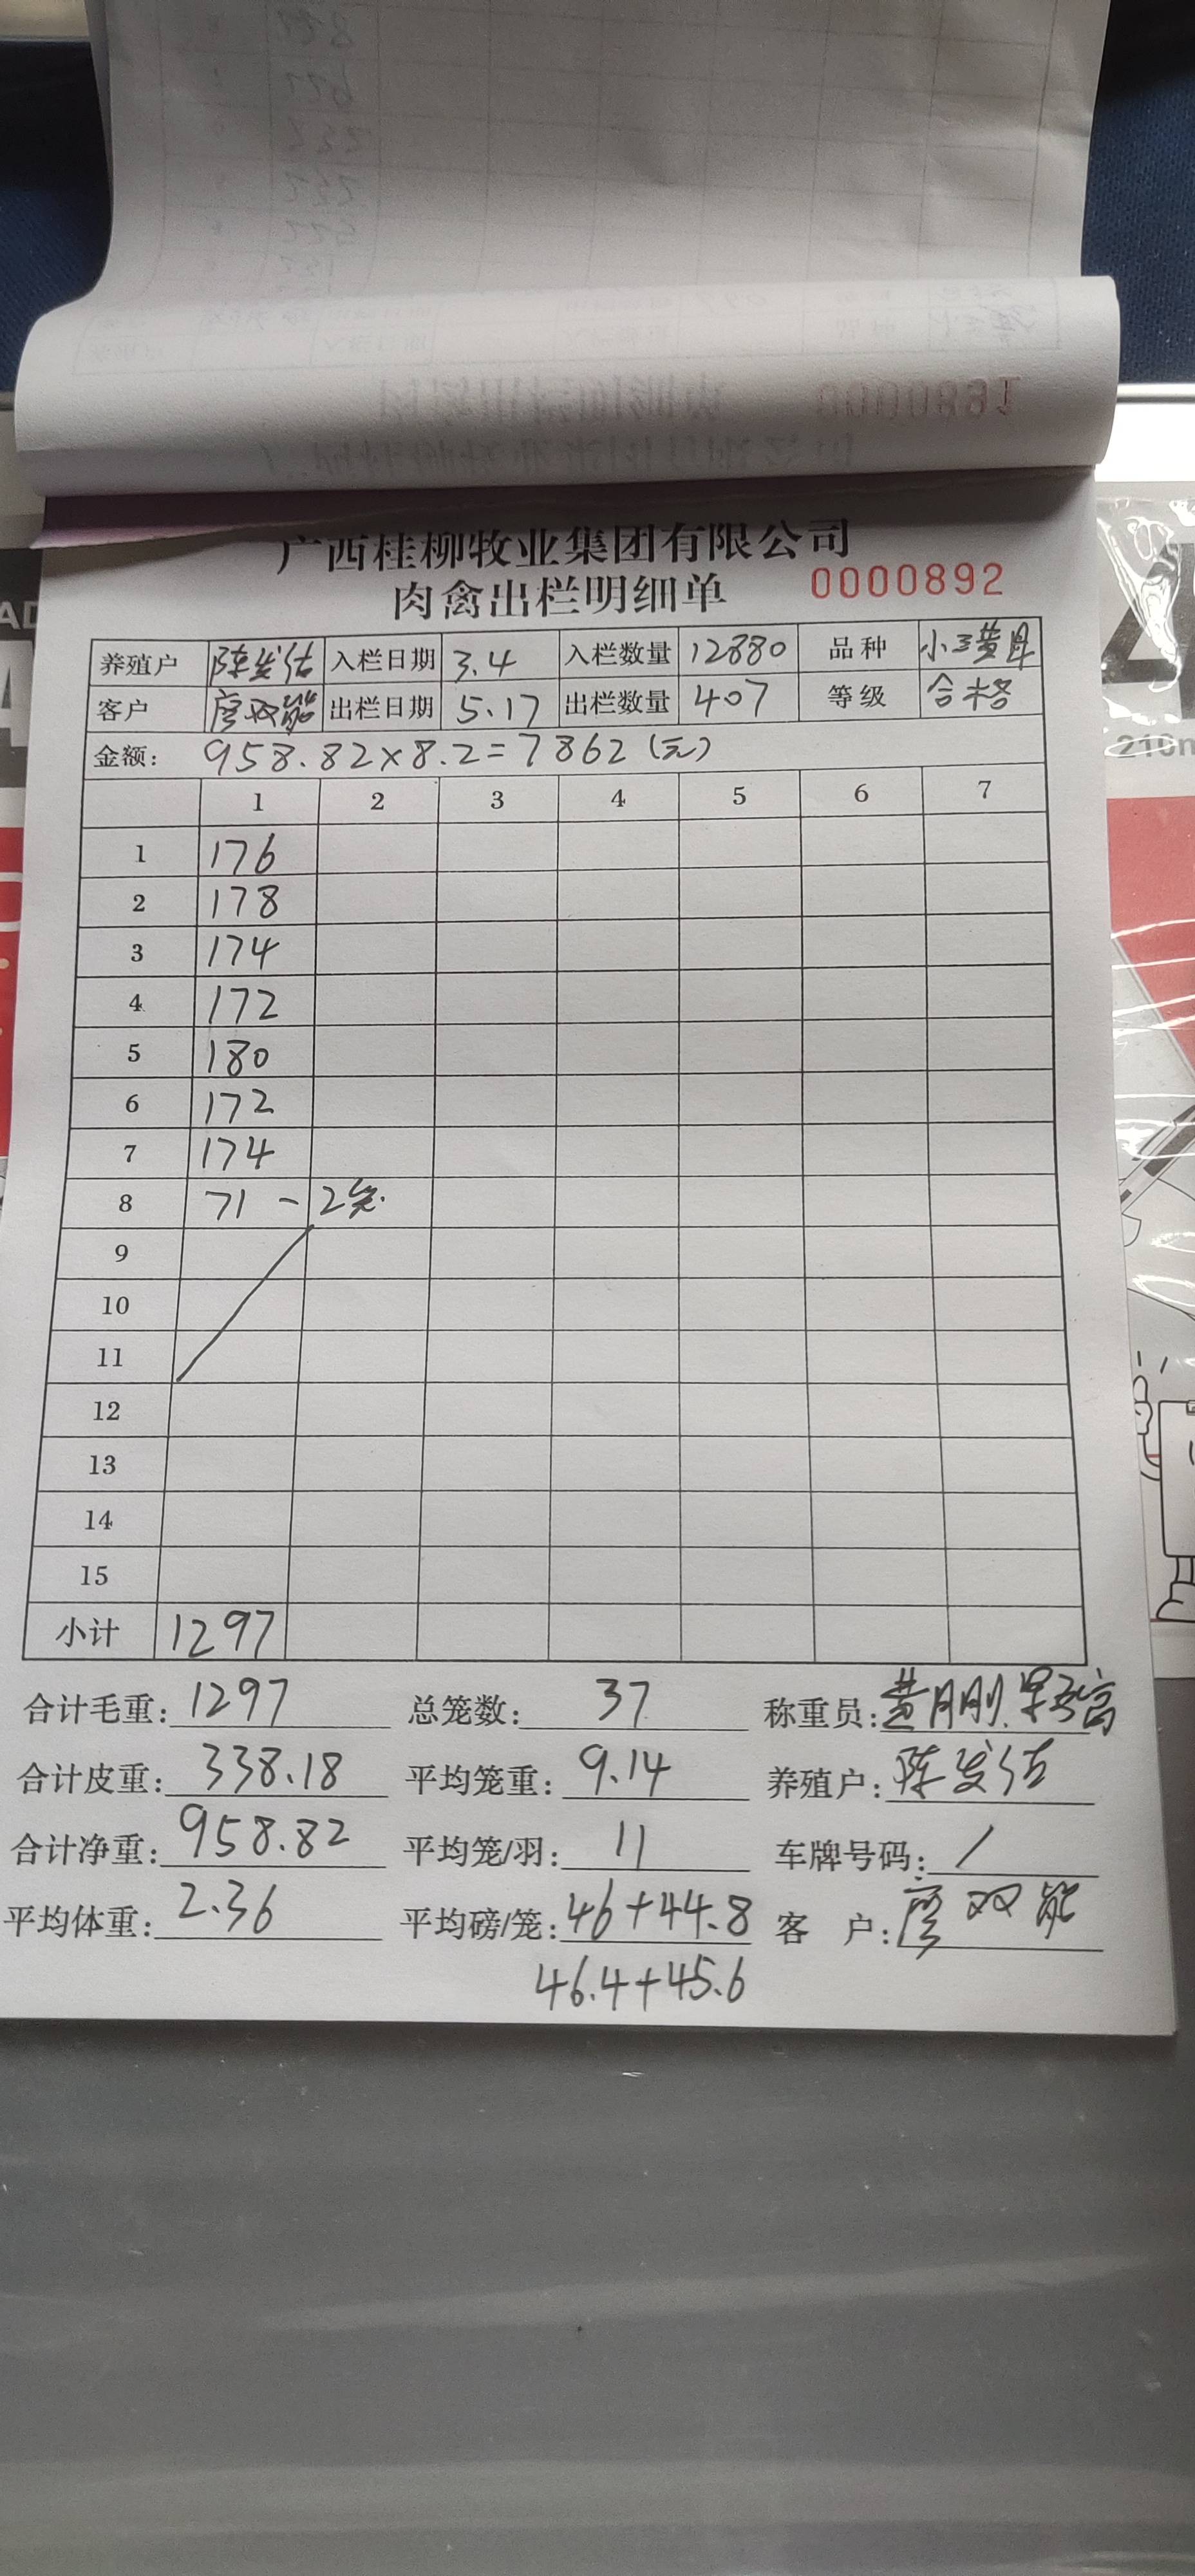 广西桂柳牧业集团有限公司
肉禽出栏明细单 0000892
养殖户 陈发佑 入栏日期 3.4 入栏数量 12880 品种
客户 廖双能 出栏日期 5.17 出栏数量 407 等级 合格
金额: 958.82×8.2=7862(元)
1 2 3 4 5 6 7
1 176
2 178
3 174
4 172
5 180
6 172
7 174
8 71 - 2笼.
9
10
11
12
13
14
15
小计 1297
合计毛重: 1297 总笼数: 37 称重员:
合计皮重: 338.18 平均笼重: 9.14 养殖户: 陈发佑
合计净重: 958.82 平均笼/羽: 11 车牌号码: /
平均体重: 2.36 平均磅/笼: 46+44.8 客户: 廖双能
46.4+45.6
210m